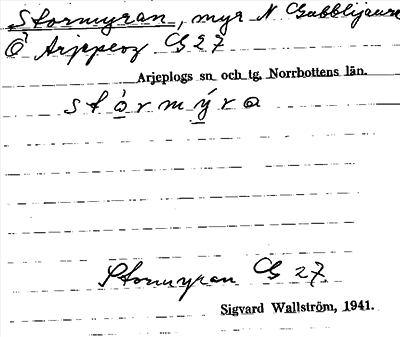 Stormyran, myr N. Gubblijaure
Ö Arjeplog G 27
Arjeplogs sn och tg, Norrbottens län.
stòrmýra
Stormyran G 27
Sigvard Wallström, 1941.